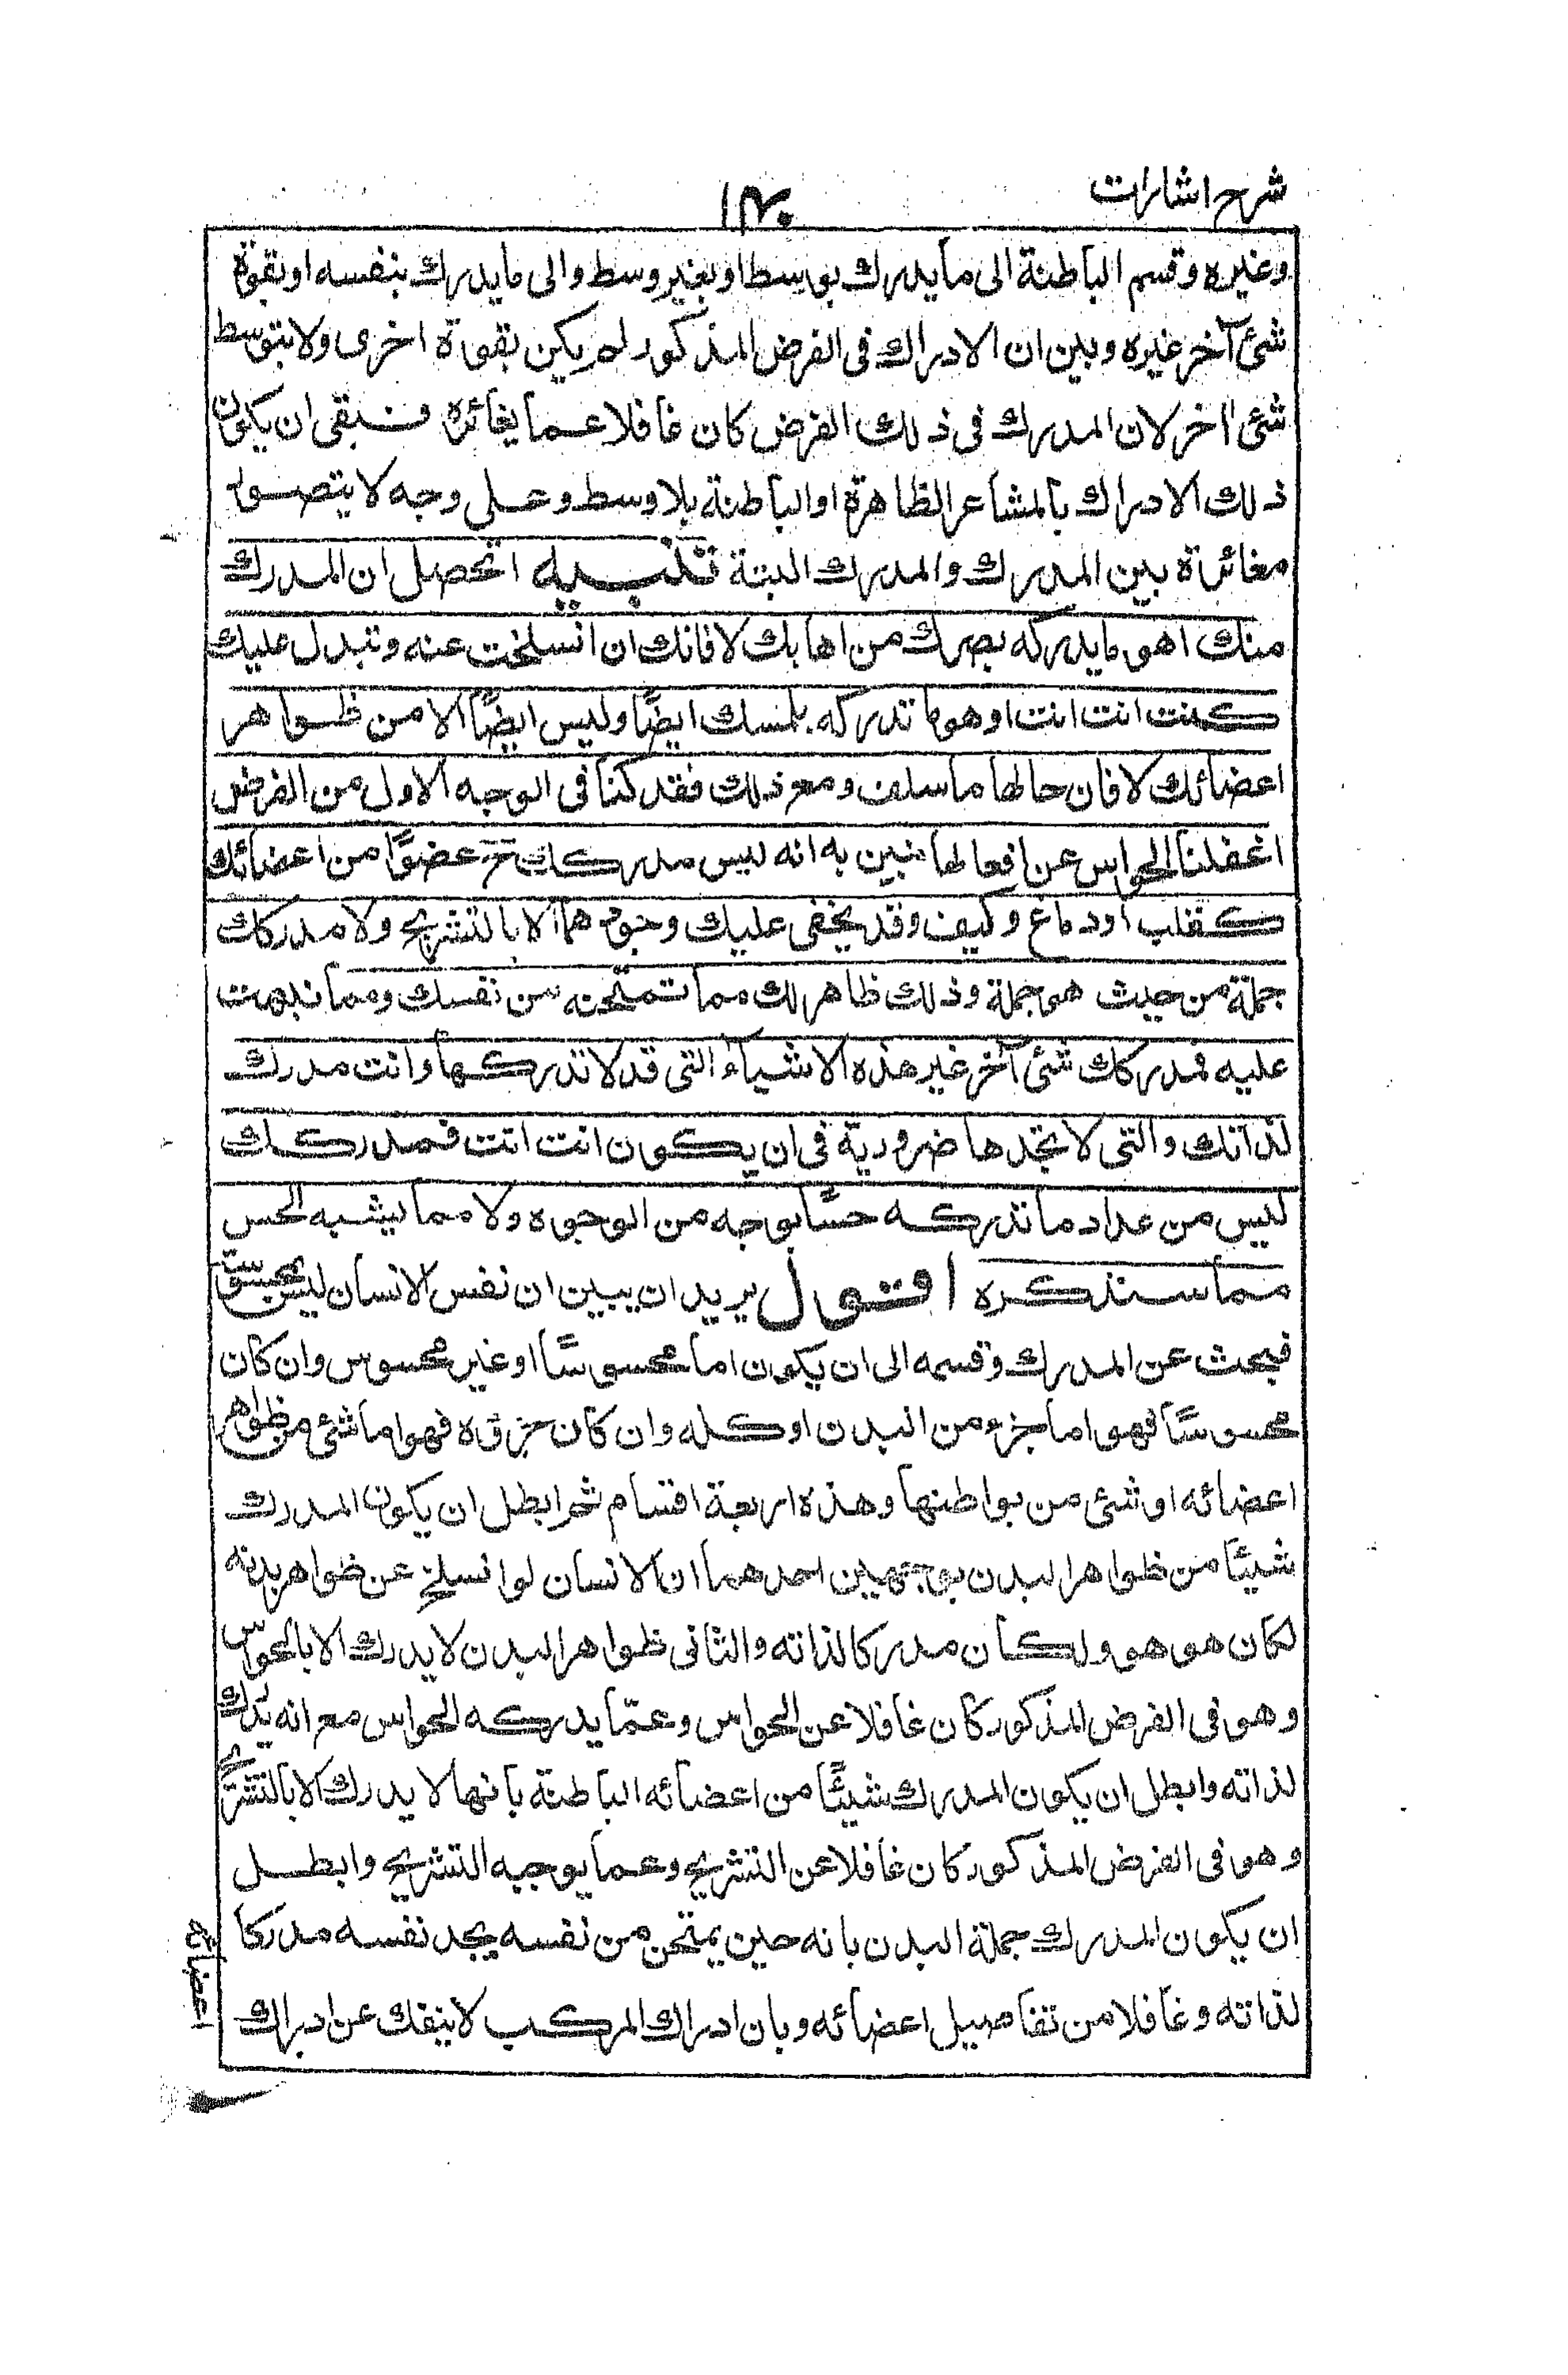 شرح اشارات
١٤٠
وغيره وقسم الباطنة الى ما يدرك بوسط او بغير وسط والى ما يدرك بنفسه او بقوة
شئ آخر غيره وبين ان الادراك فى الفرض المذكور لم يكن بقوة اخرى ولا بتوسط
شئ اخر لان المدرك فى ذلك الفرض كان غافلا عما يغائره فبقى ان يكون
ذلك الادراك بالمشاعر الظاهرة او الباطنة بلا وسط وعلى وجه لا يتصور
مغائرة بين المدرك والمدرك البتة تنبيه اتحصل ان المدرك
منك اهو ما يدركه بصرك من اهابك لا فانك ان انسلخت عنه وتبدل عليك
كنت انت انت او هو ما تدركه بلمسك ايضًا وليس ايضًا الا من ظواهر
اعضائك لا فان حالها ما سلف ومع ذلك فقد كنا فى الوجه الاول من الفرض
اغفلنا الحواس عن افعالها فبين به انه ليس مدركك ح عضوًا من اعضائك
كقلب او دماغ وكيف وقد يخفى عليك وجودهما الا بالتشريح ولا مدركك
جملة من حيث هى جملة وذلك ظاهر لك مما تمتحنه من نفسك ومما نبهت
عليه فمدركك شئ آخر غير هذه الاشياء التى قد لا تدركها وانت مدرك
لذاتك والتى لا تجدها ضرورية فى ان يكون انت انت فمدركك
ليس من عداد ما تدركه حسًّا بوجه من الوجوه ولا مما يشبه الحس
مما سنذكره اقول يريد ان يبين ان نفس الانسان ليس بمحسوسة
فبحث عن المدرك وقسمه الى ان يكون اما محسوسًا او غير محسوس وان كان
محسوسًا فهو اما جزء من البدن او كله وان كان جزؤه فهو اما شئ من ظواهر
اعضائه او شئ من بواطنها وهذه اربعة اقسام ثم ابطل ان يكون المدرك
شيئًا من ظواهر البدن بوجهين احدهما ان الانسان لو انسلخ عن ظواهر بدنه
لكان هو هو ولكان مدركا لذاته والثانى ظواهر البدن لا يدرك الا بالحواس
وهو فى الفرض المذكور كان غافلا عن الحواس وعمّا يدركه الحواس مع انه يدرك
لذاته وابطل ان يكون المدرك شيئًا من اعضائه الباطنة بانها لا يدرك الا بالتشريح
وهو فى الفرض المذكور كان غافلا عن التشريح وعما يوجبه التشريح وابطل
ان يكون المدرك جملة البدن بانه حين يمتحن من نفسه يجد نفسه مدركا
لذاته وغافلا من تفاصيل اعضائه وبان ادراك المركب لا ينفك عن ادراك